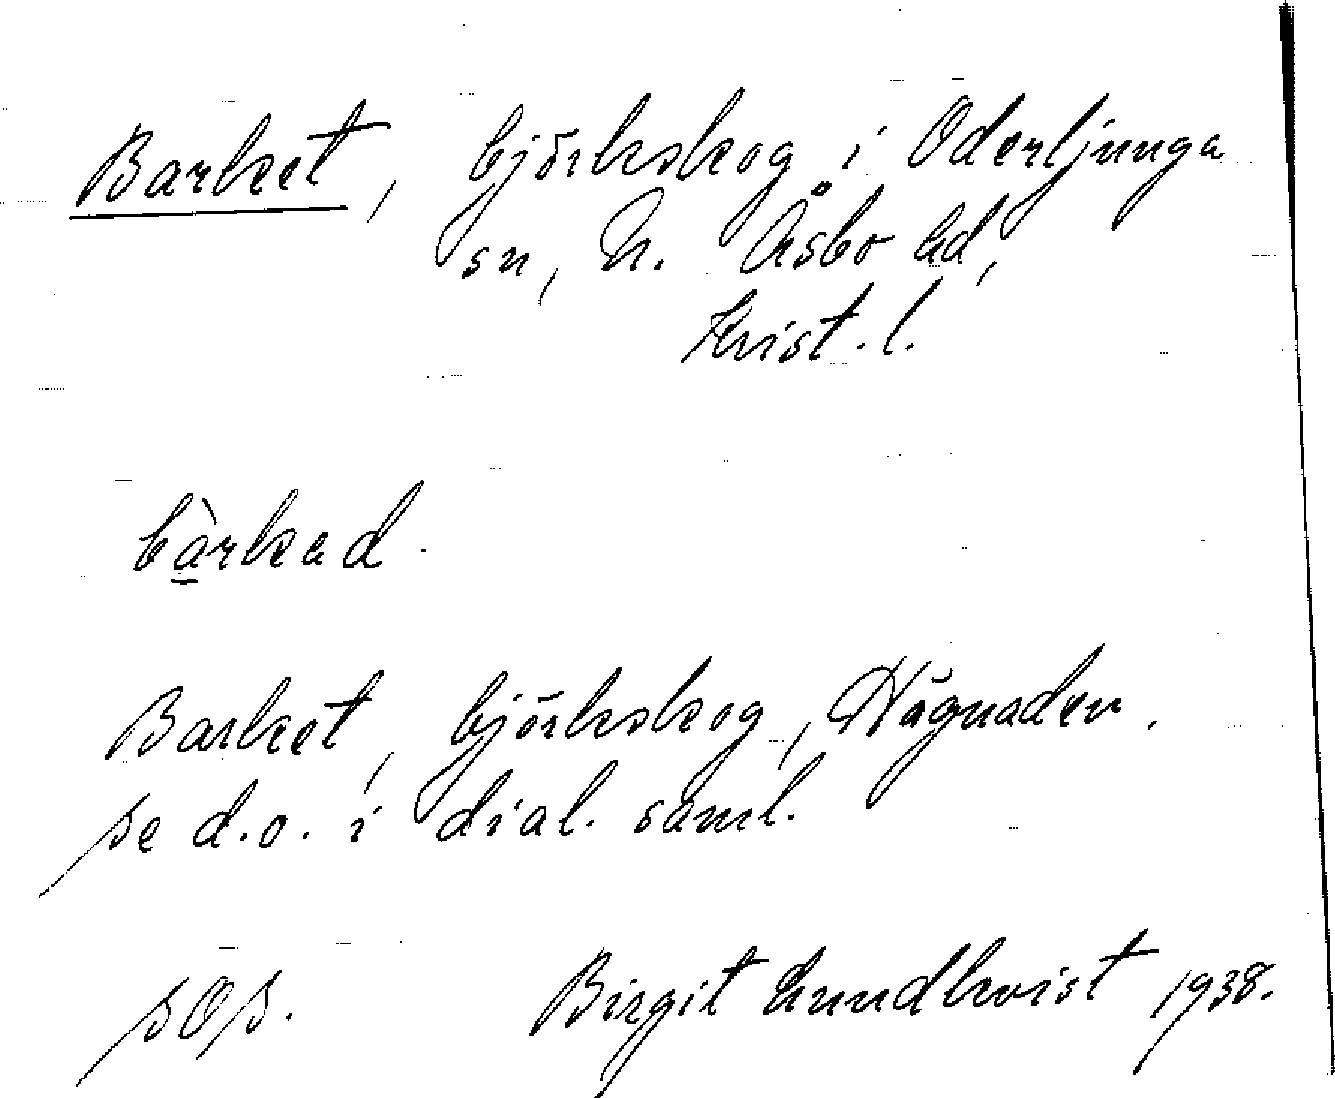 Barket, björkskog i Oderljunga
sn, N. Åsbo hd,
Krist. l.
bàrkad.
Barket, björkskog, Hägnaden.
se d.o. i dial. saml.
SOS. Birgit Lundkvist 1938.